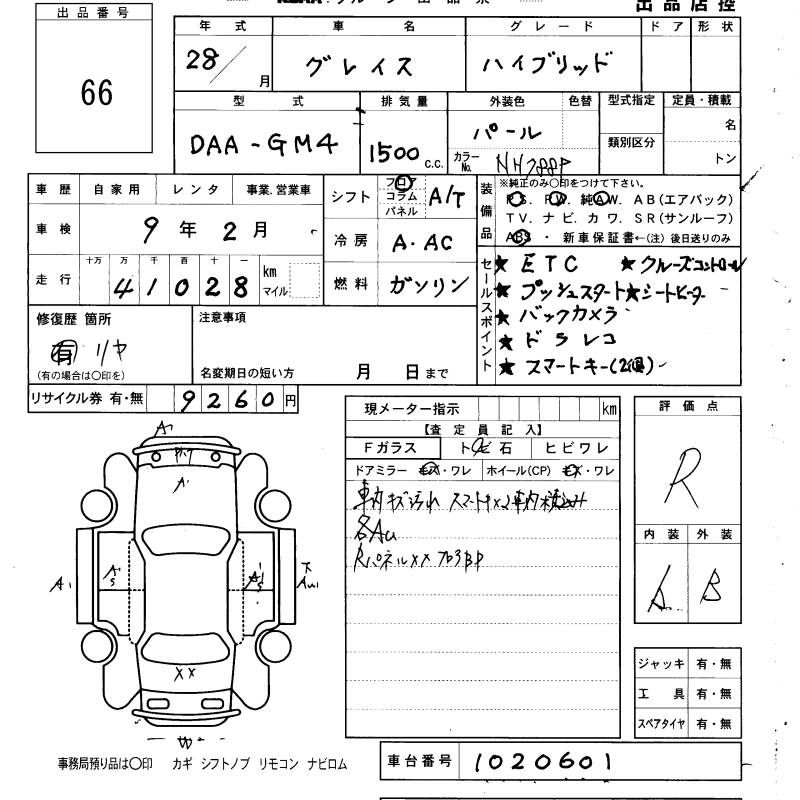 出品店控
出品番号
66
年式 車名 グレード ドア 形状
28/月 グレイス ハイブリッド
型式 排気量 外装色 色替 型式指定 定員・積載
DAA-GM4 1500 c.c. パール 類別区分 名
カラーNo. NH788P トン
車歴 自家用 レンタ 事業.営業車
車検 9年2月
走行 十万 万 千 百 十 一
41028 km マイル
シフト フロア コラム パネル A/T
冷房 A・AC
燃料 ガソリン
装備品 ※純正のみ〇印をつけて下さい。
P.S. P.W. 純A.W. A B(エアバック)
T V. ナビ. カワ. S R(サンルーフ)
ABS ・ 新車保証書←(注) 後日送りのみ
セールスポイント
★ETC ★クルーズコントロール
★プッシュスタート★シートヒーター
★バックカメラ
★ドラレコ
★スマートキー(2個)
修復歴 箇所
有 リヤ
(有の場合は〇印を)
注意事項
名変期日の短い方 月 日まで
リサイクル券 有・無 9260円
現メーター指示 km
【査定員記入】
Fガラス トビ石 ヒビワレ
ドアミラー キズ・ワレ ホイール(CP) キズ・ワレ
車内キズ汚れ スマートキー×2車内積込み
各AU
Rパネル××
評価点
R
内装 外装
A B
ジャッキ 有・無
工具 有・無
スペアタイヤ 有・無
A
A
A
××
W
事務局預り品は〇印 カギ シフトノブ リモコン ナビロム
車台番号 1020601